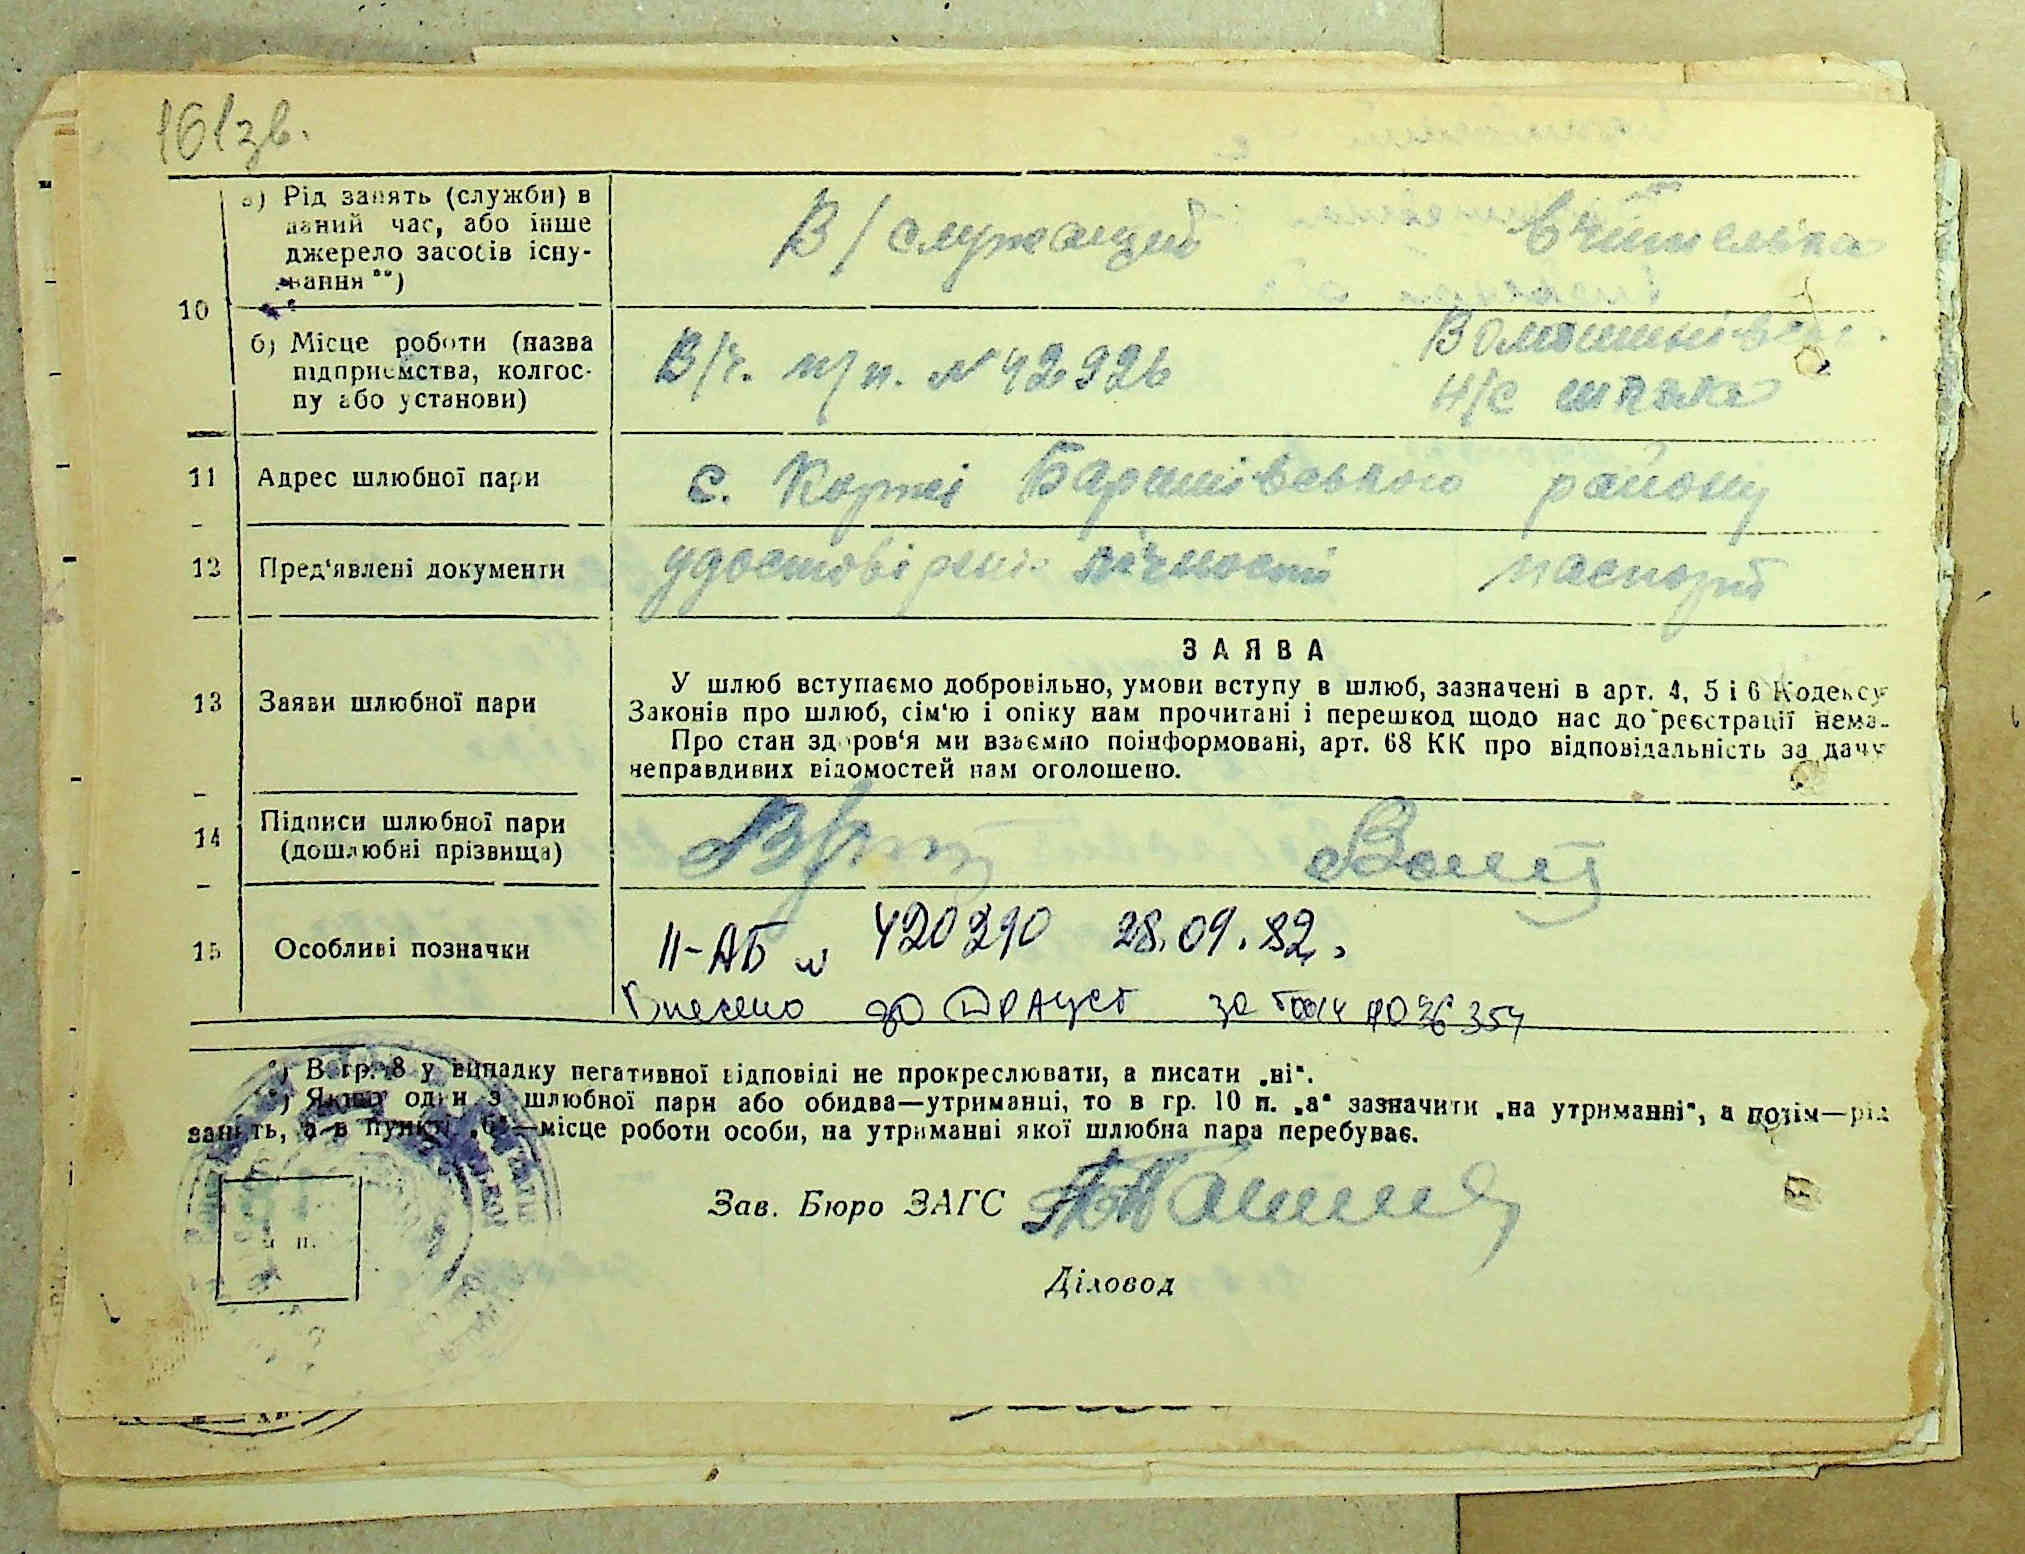 161зв.
а) Рід занять (служби) в
даний час, або інше
джерело засобів існу-
вання **)
В/служащий
Вчителька
10
б) Місце роботи (назва
підприємства, колгос-
пу або установи)
В/ч. п/п. № 42926
Н/С школа
11
Адрес шлюбної пари
с. Коржі Баришівського району
12
Пред'явлені документи
удостовірення лічності
паспорт
13
Заяви шлюбної пари
ЗАЯВА
У шлюб вступаємо добровільно, умови вступу в шлюб, зазначені в арт. 4, 5 і 6 Кодексу
Законів про шлюб, сім'ю і опіку нам прочитані і перешкод щодо нас до реєстрації нема.
Про стан здоров'я ми взаємно поінформовані, арт. 68 КК про відповідальність за дачу
неправдивих відомостей нам оголошено.
14
Підписи шлюбної пари
(дошлюбні прізвища)
15
Особливі позначки
II-АБ № 420290 28.09.82.
Внесено до ДРАЦСГ за
*) В гр. 8 у випадку негативної відповіді не прокреслювати, а писати „ні".
**) Якщо один з шлюбної пари або обидва—утриманці, то в гр. 10 п. „а" зазначити „на утриманні", а потім—рід
занять, а в пункті „б"—місце роботи особи, на утриманні якої шлюбна пара перебуває.
Зав. Бюро ЗАГС
м п.
Діловод